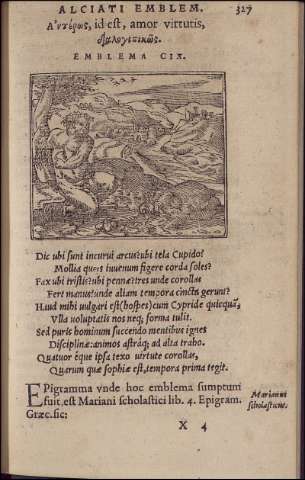 ALCIATI EMBLEM. 327
Αντέρως, id est, amor virtutis,
EMBLEMA CIX.
Dic ubi sunt incurvi arcus? ubi tela Cupido?
Mollia queis iuvenum figere corda soles?
Fax ubi tristis? ubi pennæ? tres unde corollas
Fert manus? unde aliam tempora cincta gerunt?
Haud mihi vulgari est (hospes) cum Cypride quicquã,
Ulla voluptatis nos neq; forma tulit.
Sed puris hominum succendo mentibus ignes
Disciplinæ: animos astráq; ad alta trabo.
Quatuor éque ipsa texo virtute corollas,
Quarum quæ sophiæ est, tempora prima tegit.
EPigramma vnde hoc emblema sumptum
fuit, est Mariani scholastici lib. 4. Epigram.
Græc. sic:
Mariani
scholasticus.
X 4